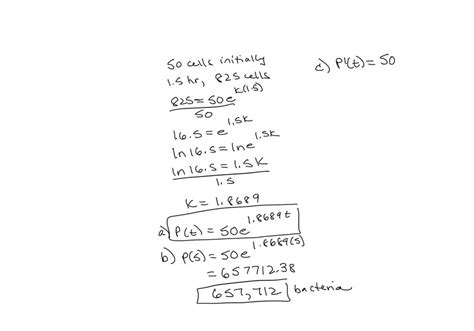 50 cells initially
1.5 hr, 825 cells
825 = 50e^k(1.5)
50
16.5 = e^1.5K
ln 16.5 = lne^1.5K
ln 16.5 = 1.5K
1.5
K = 1.8689
a) P(t) = 50e^1.8689t
b) P(5) = 50e^1.8689(5)
= 657712.38
657,712 bacteria
c) P'(t) = 50